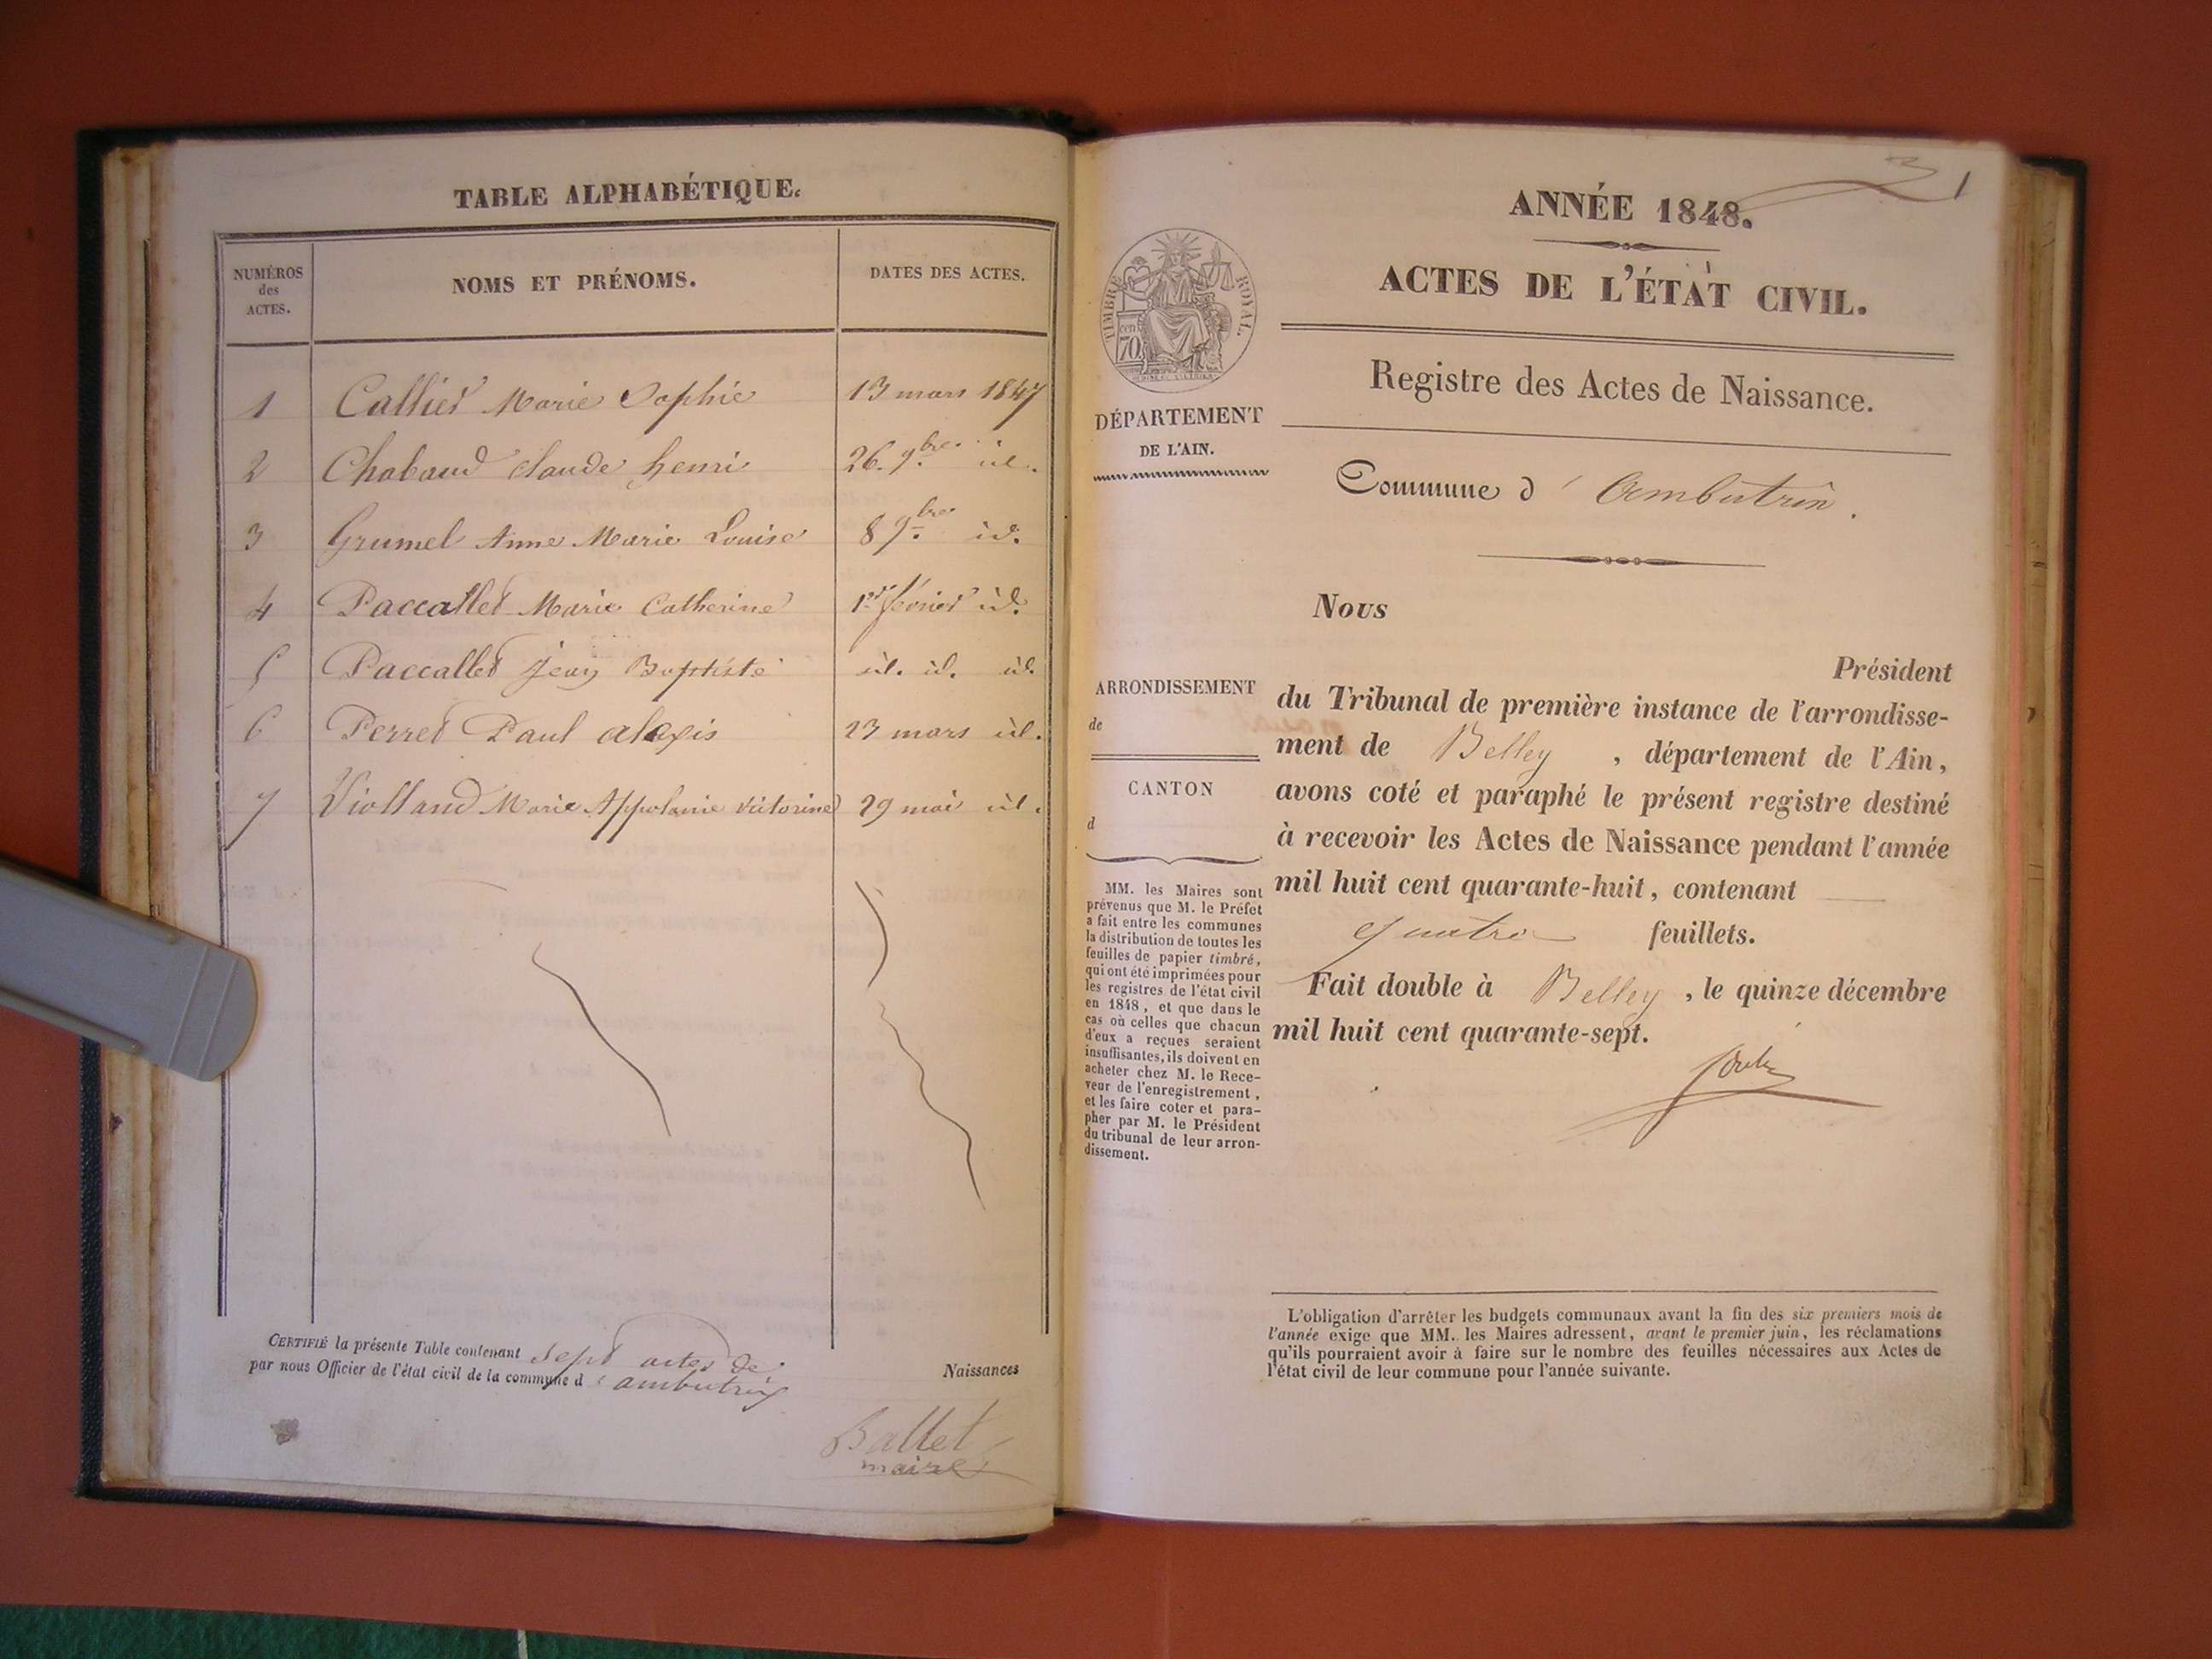 TABLE ALPHABÉTIQUE.
NUMÉROS des ACTES. NOMS ET PRÉNOMS. DATES DES ACTES.
1 Callies Marie Sophie 13 mars 1847
2 Chabaud Claude henri 26. 9bre. id.
3 Grumel Anne Marie Louise 8 9bre. id.
4 Paccallet Marie Catherine 1er février id.
5 Paccallet jean Baptiste id. id. id.
6 Perret Paul alexis 23 mars id.
7 Violland Marie Appolonie victorine 29 mai id.
CERTIFIÉ la présente Table contenant sept actes de Naissances
par nous Officier de l'état civil de la commune d'ambutrix
Ballet
maire
1
ANNÉE 1848.
ACTES DE L'ÉTAT CIVIL.
TIMBRE ROYAL.
cen 70
DÉPARTEMENT
DE L'AIN.
ARRONDISSEMENT
de
CANTON
d
MM. les Maires sont
prévenus que M. le Préfet
a fait entre les communes
la distribution de toutes les
feuilles de papier timbré,
qui ont été imprimées pour
les registres de l'état civil
en 1848, et que dans le
cas où celles que chacun
d'eux a reçues seraient
insuffisantes, ils doivent en
acheter chez M. le Rece-
veur de l'enregistrement,
et les faire coter et para-
pher par M. le Président
du tribunal de leur arron-
dissement.
Registre des Actes de Naissance.
Commune d' Ambutrix.
Nous
Président
du Tribunal de première instance de l'arrondisse-
ment de Belley, département de l'Ain,
avons coté et paraphé le présent registre destiné
à recevoir les Actes de Naissance pendant l'année
mil huit cent quarante-huit, contenant
quatre feuillets.
Fait double à Belley, le quinze décembre
mil huit cent quarante-sept.
L'obligation d'arrêter les budgets communaux avant la fin des six premiers mois de
l'année exige que MM. les Maires adressent, avant le premier juin, les réclamations
qu'ils pourraient avoir à faire sur le nombre des feuilles nécessaires aux Actes de
l'état civil de leur commune pour l'année suivante.